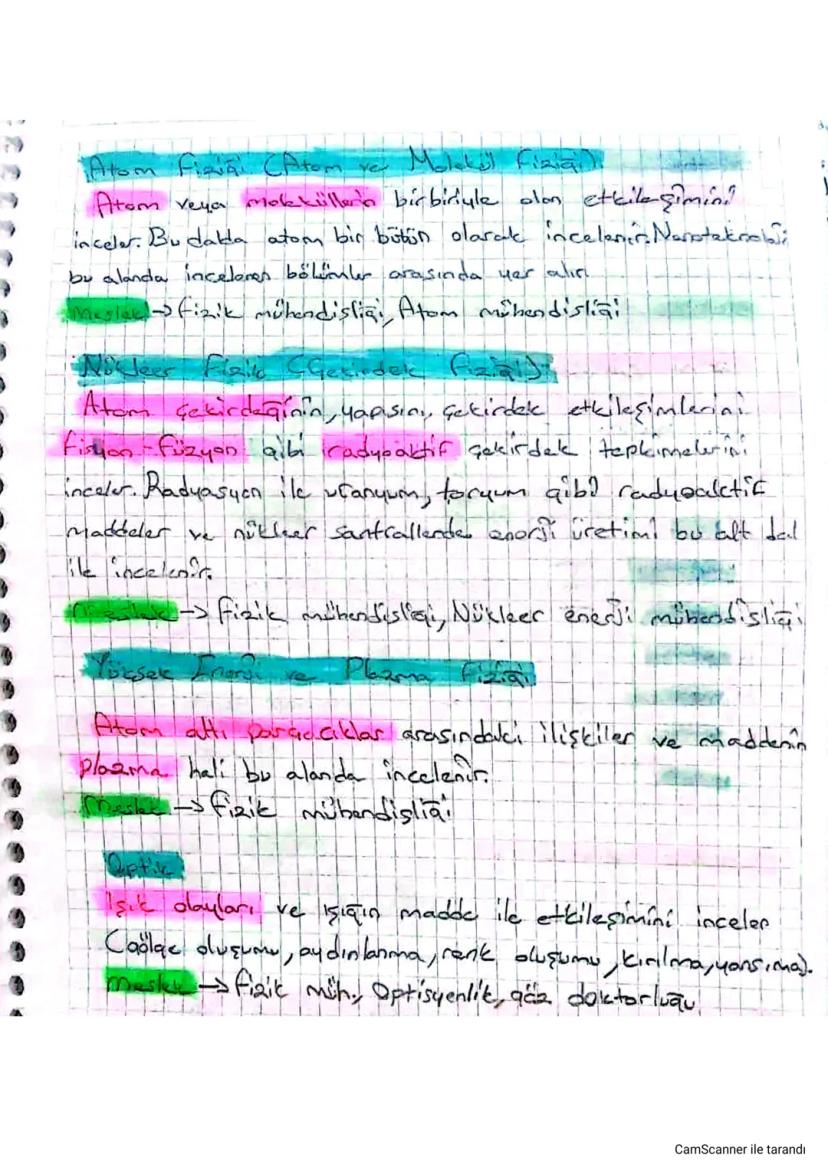 Atom Fiziği (Atom ve Molekül Fiziği)
Atom veya moleküllerin birbiriyle olan etkileşimini
inceler. Bu dalda atom bir bütün olarak incelenir. Nanoteknoloji
bu alanda incelenen bölümler arasında yer alır.
Meslek → fizik mühendisliği, Atom mühendisliği
Nükleer Fizik (Çekirdek Fiziği)
Atom çekirdeğinin, yapısını, çekirdek etkileşimlerini
fisyon-füzyon gibi radyoaktif çekirdek tepkimelerini
inceler. Radyasyon ile uranyum, toryum gibi radyoaktif
maddeler ve nükleer santrallerde enerji üretimi bu alt dal
ile incelenir.
Meslek → fizik mühendisliği, Nükleer enerji mühendisliği
Yüksek Enerji ve Plazma Fiziği
Atom altı parçacıklar arasındaki ilişkiler ve maddenin
plazma hali bu alanda incelenir.
Meslek → fizik mühendisliği
Optik
Işık olayları ve ışığın madde ile etkileşimini inceler
(gölge oluşumu, aydınlanma, renk oluşumu, kırılma, yansıma).
Meslek → fizik müh., Optisyenlik, göz doktorluğu
CamScanner ile tarandı